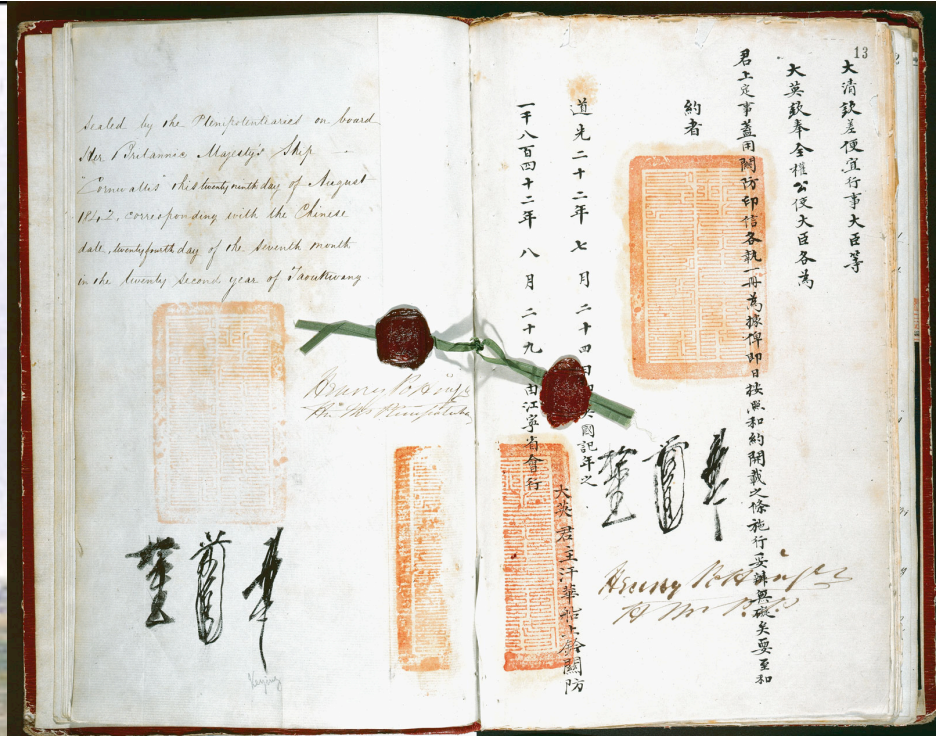 Sealed by the Plenipotentiaries on board
Her Britannic Majesty's Ship
"Cornwallis" this twenty ninth day of August
1842, corresponding with the Chinese
date, twenty fourth day of the seventh month
in the twenty second year of Taoukwang.
Henry Pottinger
13
大清欽差便宜行事大臣等
大英欽奉全權公使大臣各為
君上定事蓋用關防印信各執一冊為據俾即日按照和約開載之條施行妥辦無礙矣要至和
約者
道光二十二年七月二十四日 國記年之
一千八百四十二年八月二十九 由江寧省會行
大英君主汗華船上鈐關防
Henry Pottinger